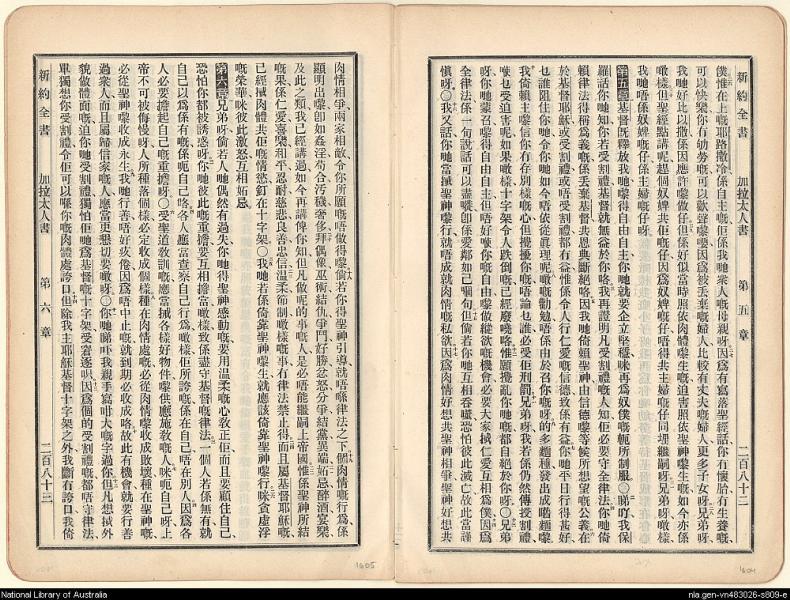 新約全書 加拉太人書 第五章 二百八十二
僕惟在上嘅耶路撒冷係自主佢係我哋衆人嘅母親呀因爲有寫落聖經話你有懷胎冇生養嘅
可以快樂你冇劬勞嘅可以歡聲嚟嗌因爲被丟棄嘅婦人比較有丈夫嘅婦人更多子女呀兄弟呀
我哋好比以撒係因應許嚟做仔但係好似當時照依肉體嚟生嘅迫害照依聖神嚟生嘅如今亦係
噉樣但聖經點講呢趕個奴婢共佢嘅仔因爲奴婢嘅仔唔得共主婦嘅仔同埋繼嗣呀兄弟呀噉樣
我哋唔係奴婢嘅仔係主婦嘅仔呀
第五章基督旣釋放我哋嚟得自由自主你哋就要企立堅穩咪再爲奴僕嘅軛所制服〇睇吖我保
羅話你哋知你若受割禮基督就無益於你咯我再證明凡受割禮嘅人知佢必要守全律法你哋倚
賴律法得稱爲義嘅係丟棄基督共恩典斷絕咯因我哋倚賴聖神由信德嚟等候所想望嘅公義在
於基督耶穌或受割禮或唔受割禮都冇益惟係令人行仁愛嘅信德致係有益你哋平日行得甚好
乜誰阻住你哋令你哋如今唔依從眞理呢噉嘅勸勉唔係由於召你嘅呀的多麵種發出成 麵嚟
我倚賴主嚟信你冇存別樣嘅心但攪擾你哋嘅唔論乜誰必受佢刑罰兄弟呀我若係仍然傳授割禮
乜受迫害呢如果噉樣十字架令人跌倒嘅已經廢曉咯惟願攪亂你哋嘅都自絕於你呀〇兄弟
呀你哋蒙召嚟得自由自主但唔好 你嘅自由做縱欲嘅機會必要大家 仁愛互相爲僕因爲
全律法係一句說話可以盡嘅卽係愛鄰如己嗰句但倘若你哋互相吞噬恐怕彼此滅亡故此當謹
愼呀〇我又話你哋當 聖神嚟行就唔成就肉情嘅私欲因爲肉情好想共聖神相爭聖神好想共
1604
肉情相爭兩家相敵令你所願嘅唔做得嚟倘若你得聖神引導就唔喺律法之下個肉情嘅行爲係
顯明出嚟卽如姦淫苟合污穢奢侈拜偶像巫術結仇爭鬥好勝忿怒分爭結黨異端妒忌醉酒宴樂
及此之類我已經講過如今再講俾你知但凡做呢的事嘅人是必唔能繼嗣上帝國惟係聖神所結
嘅果係仁愛喜樂和平忍耐慈悲良善忠信溫柔節制噉樣嘅事冇律法禁止得而且屬基督耶穌嘅
已經 肉體共佢嘅情慾釘在十字架〇我哋若係倚靠聖神嚟生就應該倚靠聖神嚟行咪貪虛浮
嘅榮華咪彼此激怒互相妒忌
第六章兄弟呀倘若人哋偶然有過失你哋得聖神感動嘅要用溫柔嘅心敎正佢而且要顧住自己
恐怕你都被誘惑呀你哋彼此嘅重擔要互相擔當噉樣致係盡守基督嘅律法一個人若係無有就
自己以爲係有嘅係呃自己咯各人應當查察自己行爲噉樣佢所誇嘅係在自己唔在別人因爲各
人必要擔起自己嘅重擔呀〇受聖道敎訓嘅應當 各樣好物件嚟供應施敎嘅人咪呃自己呀上
帝不可被侮慢呀人所種落個樣必定收成個樣種在肉情處嘅必從肉情嚟收成敗壞種在聖神嘅
必從聖神嚟收成永生我哋行善唔好疲倦因爲唔中止嘅就到期必收成咯故此有機會就要行善
過衆人而且屬歸信家嘅人應當更懇切要噉呀〇你哋睇吓我親手寫咁大嘅字過你但凡想 外
貌做體面嘅迫你哋受割禮獨怕佢哋爲基督嘅十字架受窘逐呮因爲個的受割禮嘅都唔守律法
單獨想你受割禮令佢可以喺你嘅肉體處誇口但除我主耶穌基督十字架之外我斷冇誇口我倚
新約全書 加拉太人書 第六章 二百八十三
1605
National Library of Australia
nla.gen-vn483026-s809-e